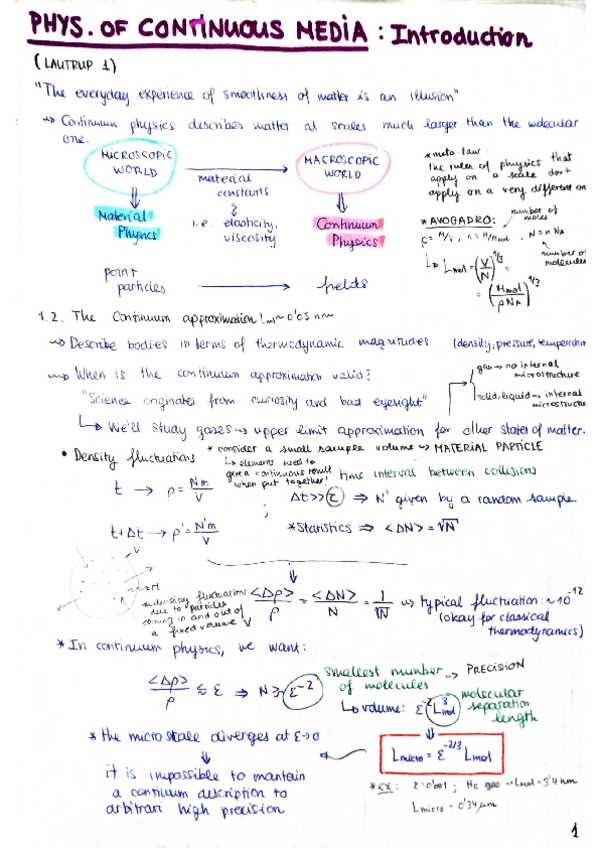 PHYS. OF CONTINUOUS MEDIA : Introduction
(LAUTRUP 1)
"The everyday experience of smoothness of matter is an illusion"
↝ Continuum physics describes matter at scales much larger than the molecular
one.
MICROSCOPIC WORLD → MACROSCOPIC WORLD
material constants
i.e. elasticity, viscosity
Material Physics
Continuum Physics
point particles → fields
* meta-law:
the rules of physics that
apply on a scale don't
apply on a very different on
* AVOGADRO:
number of moles
ρ = M/V ; n = M/Mmol , N = n NA
number of molecules
↳ Lmol = (V/N)^1/3 =
= (Mmol/ρNA)^1/3
1.2. The Continuum approximation
↝ Describe bodies in terms of thermodynamic magnitudes (density, pressure, temperatur
↝ When is the continuum approximation valid?
gas → no internal microstructure
solid, liquid → internal microstructu
"Science originates from curiosity and bad eyesight"
↳ We'll study gases ↝ upper limit approximation for other states of matter.
• Density fluctuations
* consider a small sample volume ↝ MATERIAL PARTICLE
↳ elements need to
give a continuous result
when put together!
time interval between collisions
t → ρ = Nm/V ;
Δt >> τ ⇒ N' given by a random sample.
t+Δt → ρ' = N'm/V
* Statistics ⇒ <ΔN> = √N
* density fluctuation
due to particles
coming in and out of
a fixed volume V
<Δρ>/ρ = <ΔN>/N = 1/√N ↝ typical fluctuation: ~10^-12
(okay for classical
thermodynamics)
* In continuum physics, we want:
<Δρ>/ρ ≲ ε ⇒ N ≥ ε^-2
smallest number of molecules ↝ PRECISION
↳ volume: ε^-2 L^3mol
molecular separation length
* the micro scale diverges at ε→0
Lmicro = ε^-2/3 Lmol
it is impossible to mantain
a continuum description to
arbitrari high precision
* ex: ε=0'001 ; He gas ↝ Lmol = 3'4 nm
Lmicro = 0'34 μm
1